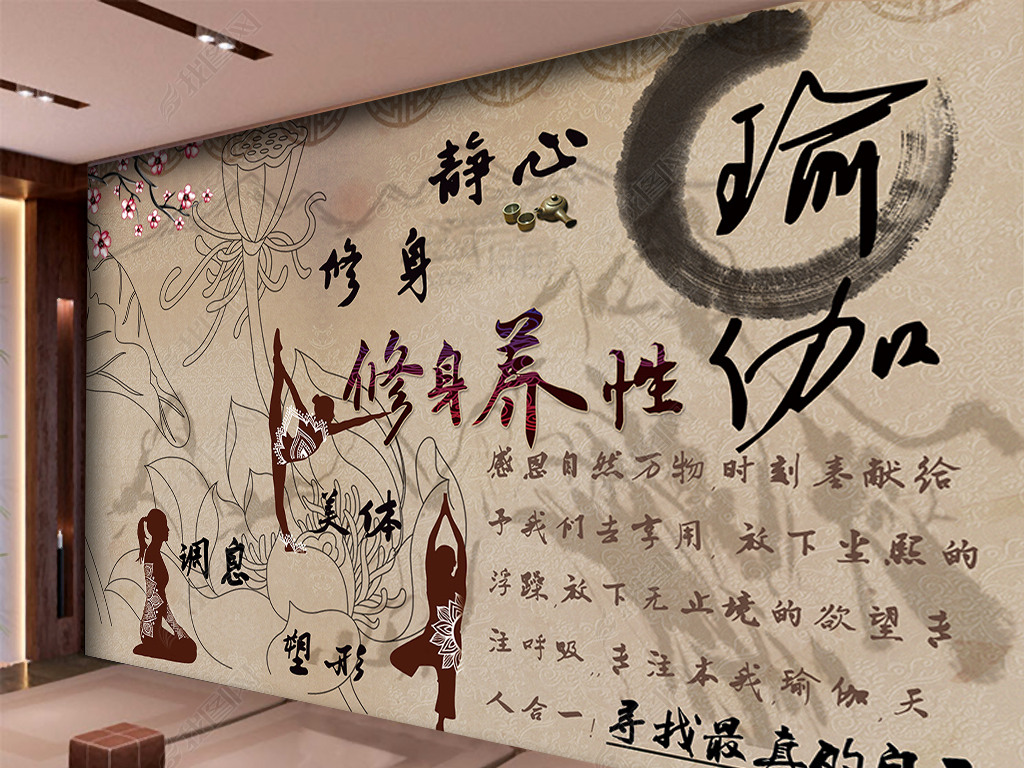 瑜伽
静心
修身
修身养性
美体
调息
塑形
感恩自然万物,时刻奉献给
予我们去享用,放下尘熙的
浮躁,放下无止境的欲望专
注呼吸,专注本我,瑜伽,天
人合一,
寻找最真的自